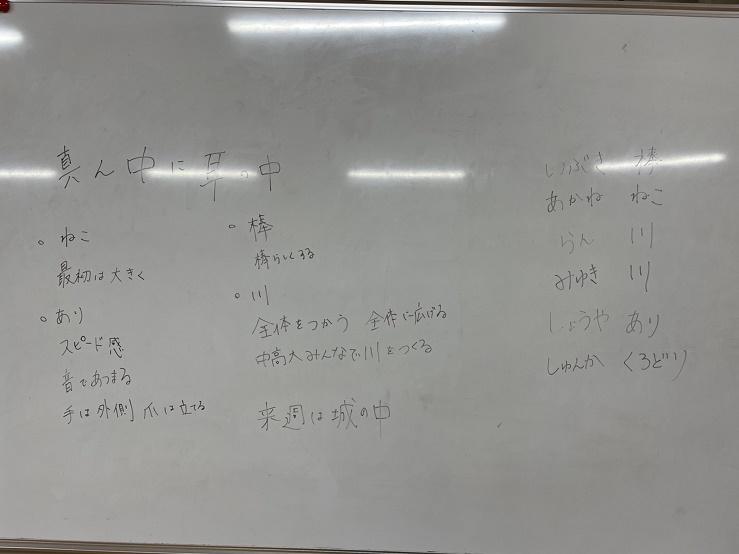 真ん中に耳の中
○ ねこ
最初は大きく
○ あり
スピード感
音であつまる
手は外側 爪は立てる
○ 棒
棒らしくする
○ 川
全体をつかう 全体に広げる
中高大みんなで川をつくる
来週は城の中
いぶき 棒
あかね ねこ
らん 川
みゆき 川
しょうや あり
しゅんか くろどり